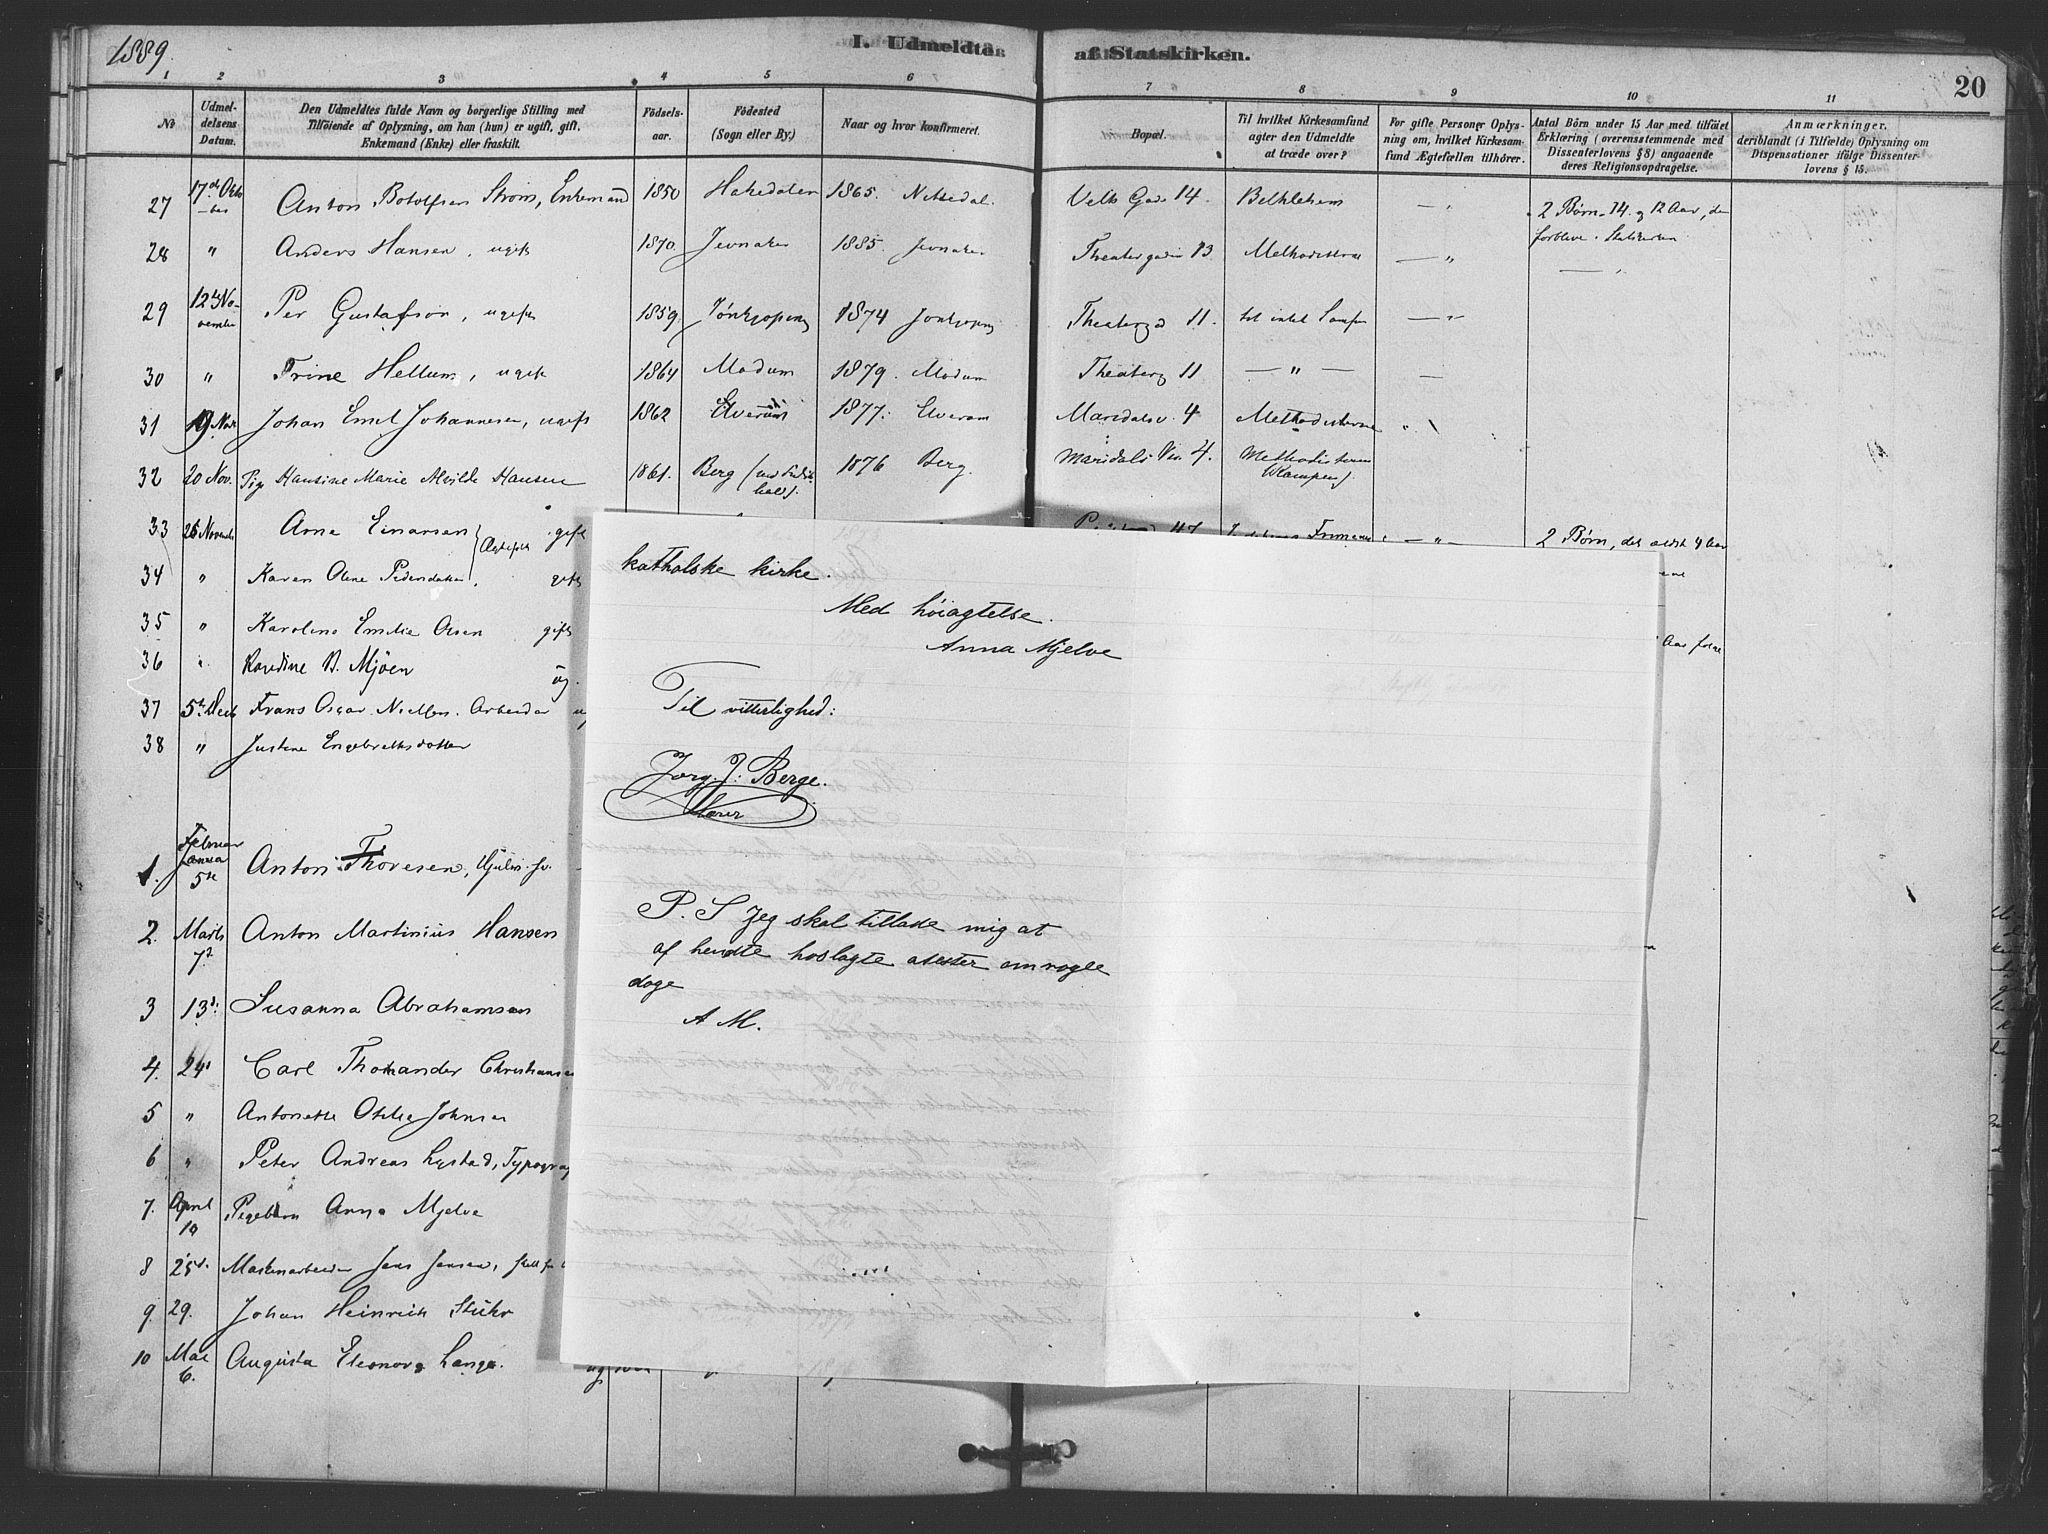 1889.
I. Udmeldte af Statskirken.
20
1 2 3 4 5 6 7 8 9 10 11
No
Udmel-
delsens
Datum.
Den Udmeldtes fulde Navn og borgerlige Stilling med
Tilføiende af Oplysning, om han (hun) er ugift, gift,
Enkemand (Enke) eller fraskilt.
Fødsels-
aar.
Fødested
(Sogn eller By.)
Naar og hvor konfirmeret.
Bopæl.
Til hvilket Kirkesamfund
agter den Udmeldte
at træde over?
For gifte Personer Oplys-
ning om, hvilket Kirkesam-
fund Ægtefællen tilhører.
Antal Børn under 15 Aar med tilføiet
Erklæring (overensstemmende med
Dissenterlovens § 8) angaaende
deres Religionsopdragelse.
Anmærkninger,
deriblandt (i Tilfælde) Oplysning om
Dispensationer ifølge Dissenter
lovens § 15.
27 17de Octo-ber Anton Botolfsen Strøm, Enkemand 1850 Hakedalen 1865. Nittedal. Velts Gade 14. Bethlehem — " 2 Børn 14 og 12 Aar, der
forblive i Statskirken
28 " Anders Hansen, ugift 1870. Jevnaker 1885. Jevnaker Theatergaden 13 Methodisterne — " — "
29 12te No-vember Per Gustafson, ugift 1859. Jønkjøping 1874 Jønkjøping Theatergd 11. til intet Samfun — "
30 " Trine Hellum, ugift 1864 Modum 1879. Modum Theaterg 11 — " — —
31 19 Nov. Johan Emil Johannesen, ugift 1862 Elverum 1877. Elverum Maridalsv. 4 Methodisterne "
32 20 Nov. Pige Hansine Marie Alvilde Hansen 1861. Berg (ved Fredrik-
hald). 1876 Berg. Maridals Vei 4. Methodisterne
(Kampen).
33 26 November Arne Einarsen gift 47 — " — 2 Børn, det ældst 4 Aar
Ægtefolk
34 " Karen Oline Pedersdatter, gift
35 " Karoline Emilie Olsen gift Aar
36 " Karedine B. Mjøen ug.
37 5te Decb Frans Oscar Nielsen. Arbeider
38 " Justine Engebrethsdatter
1. Februar
Janua
5te Anton Thoresen,
2. Marts
7d Anton Martinius Hansen
3 13d. Susanna Abrahamsen
4. 24d Carl Thorander Christiansen
5 " Antonette Otilie Johnsen
6 " Peter Andreas Lystad, Typogra
7. April
10 Pigebarn Anna Mjelve
8 25d. Maskinarbeider Jens Jensen,
9. 29. Johan Heinrich Stühr
10 Mai
6. Augusta Eleonora Lange. ug
katholske kirke.
Med høiagtelse.
Anna Mjelve
Til vitterlighed:
Jørg. J. Berge.
P. S Jeg skal tillade mig at
af hendte hoslagte atester om nogle
dage
A M.